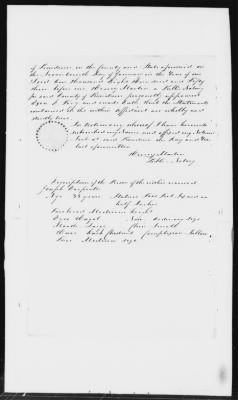 of in the county and State aforesaid on
the Seventeenth day of January in the Year of our
Lord One thousand Eight Hundred and Fifty
three before me Henry Martin a Public Notary
for said County of personally appeared
and made Oath that the Statements
contained in the within affidavit are wholly and
strictly true
In testimony whereof I have hereunto
subscribed my name and affixed my Notarial
Seal at said the Day and Year
last aforewritten
Henry Martin
Public Notary
Description of the Person of the within named
Joseph
Age 33 years Stature Five feet and
half Inches
Forehead Medium height
Eyes Hazel Nose Ordinary size
Mouth Large Chin Small
Hair Dark Complexion
Face Medium size